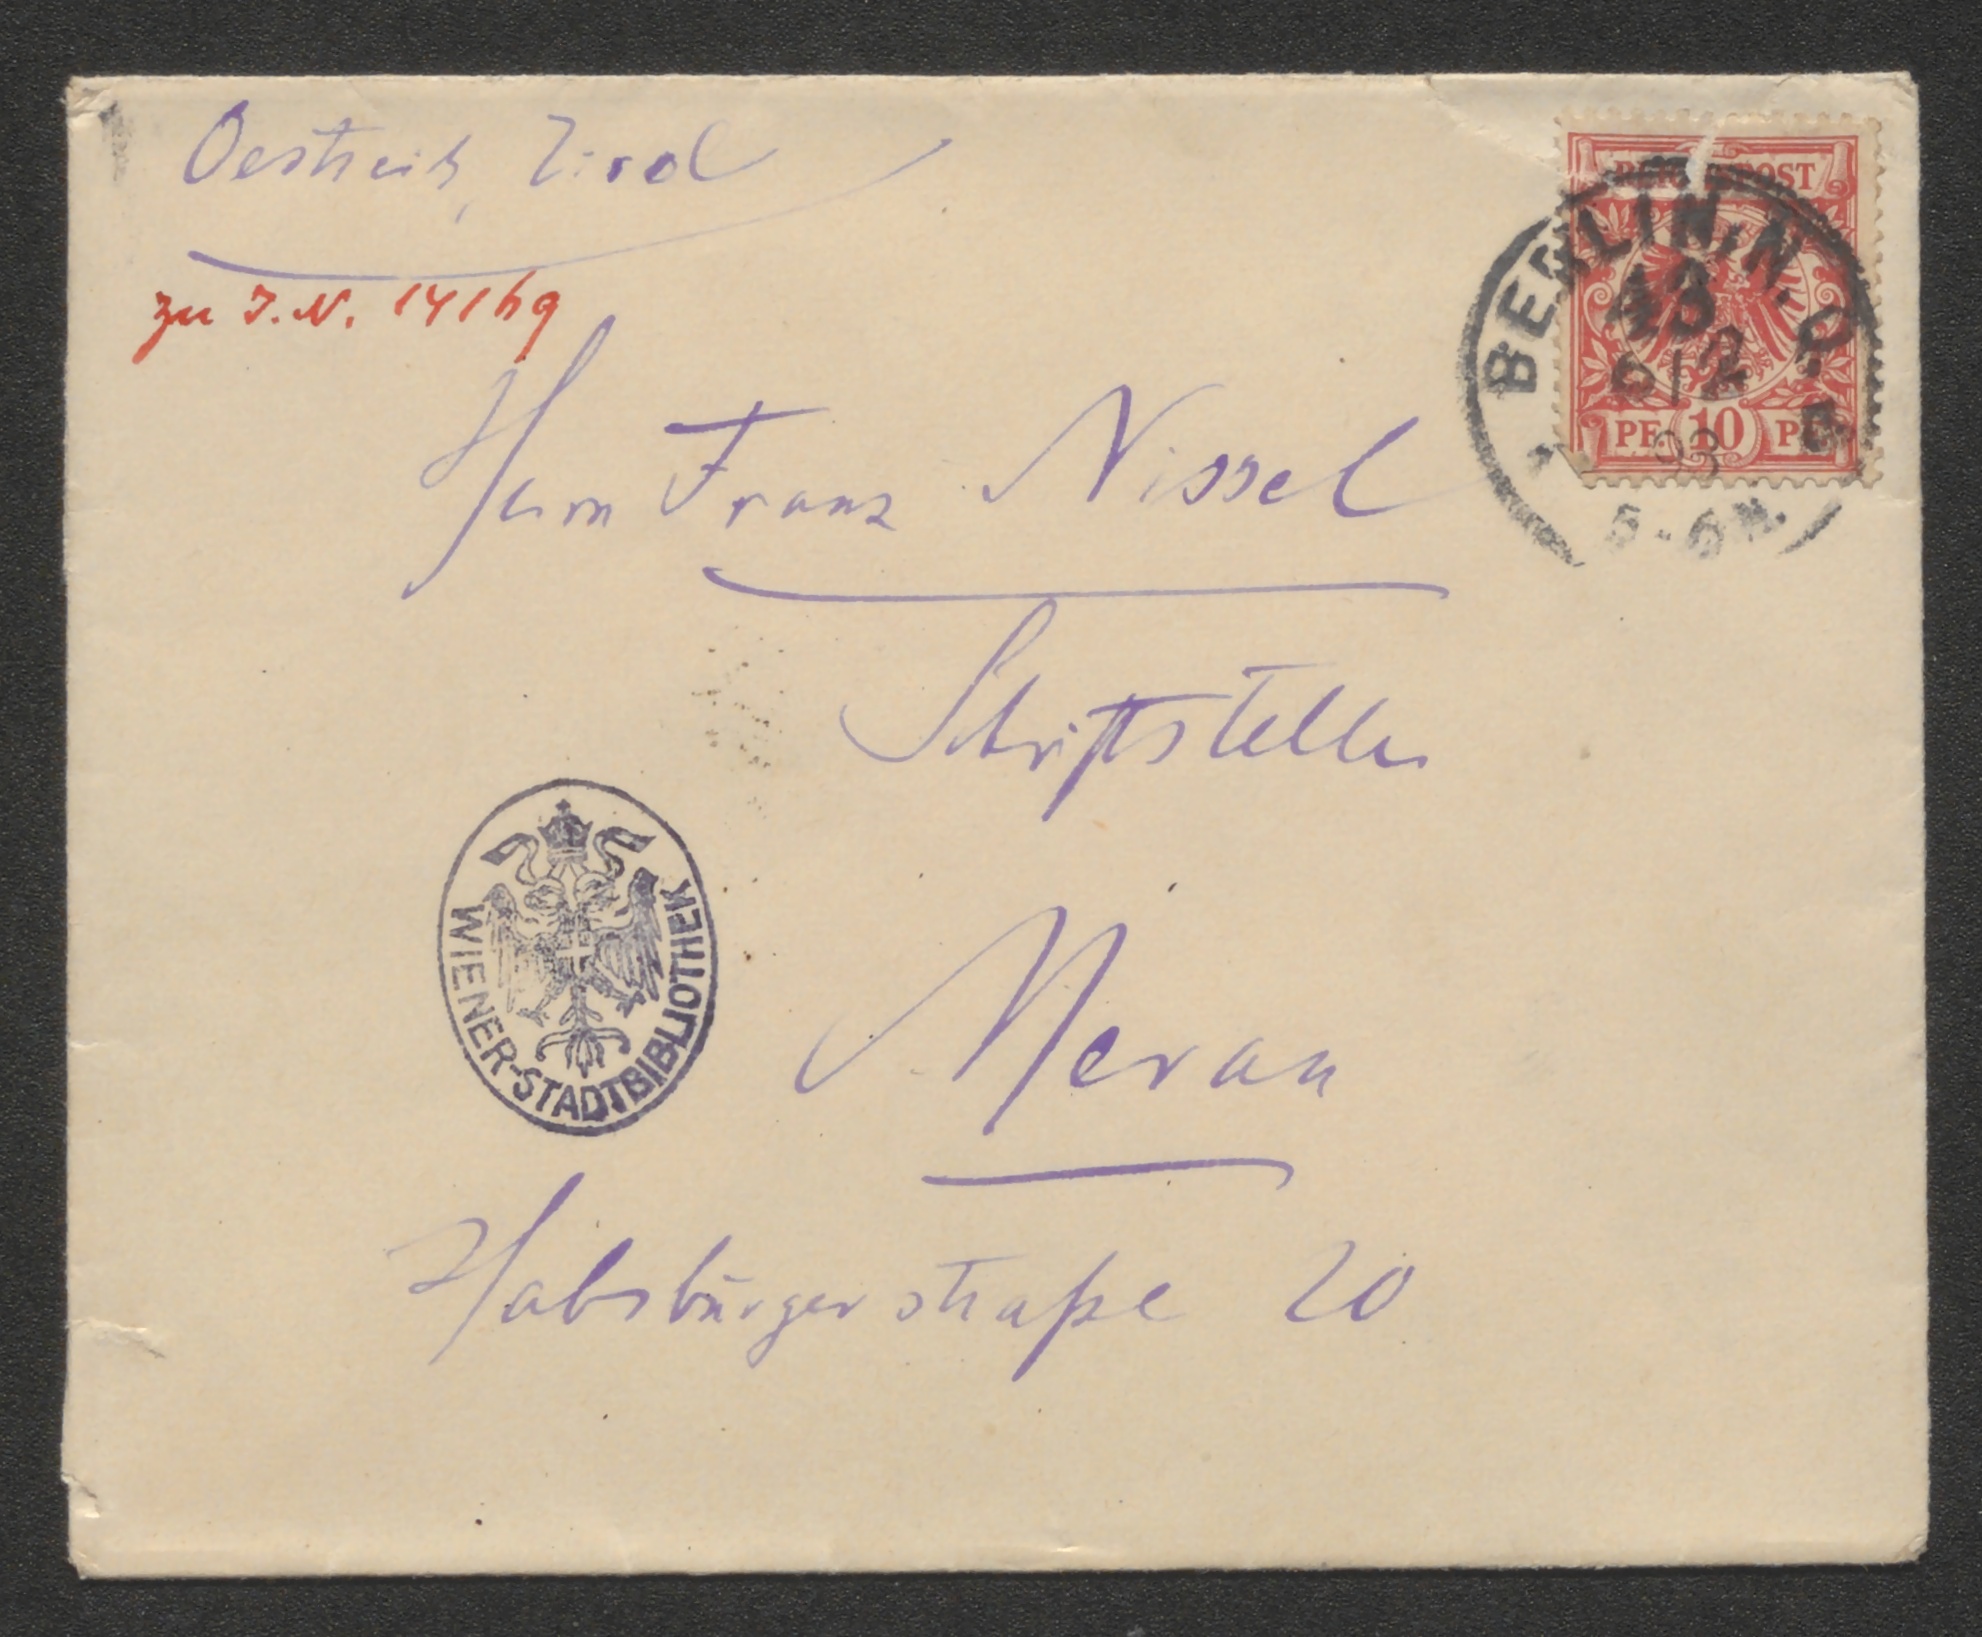 Oestreich, Tirol
zu I.N. 14169
REICHSPOST
BERLIN, N.O.
43
6/2
93
5-6N.
PF. 10 PF.
Herrn Franz Nissel
Schriftsteller
WIENER-STADTBIBLIOTHEK
Meran
Habsburgerstraße 20